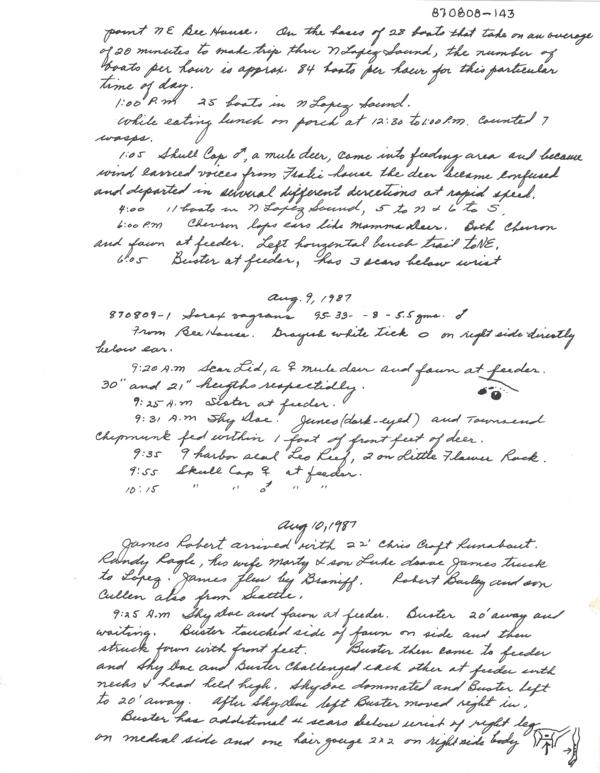 870808-143
point NE Bee House. On the bases of 28 boats that take on an average
of 20 minutes to make trip thru N Lopez Sound, the number of
boats per hour is approx. 84 boats per hour for this particular
time of day.
1:00 P.M 25 boats in N Lopez Sound.
While eating lunch on porch at 12:30 to 1:00 P.M. counted 7
wasps.
1:05 Skull Cap ♂, a mule deer, came into feeding area and because
wind carried voices from house the deer became confused
and departed in several different directions at rapid speed.
4:00 11 boats in N Lopez Sound, 5 to N & 6 to S.
6:00 P.M Chevron lops ears like mamma Deer. Both Chevron
and fawn at feeder. Left horizontal bench trail to NE.
6:05 Buster at feeder, has 3 scars below wrist
Aug. 9, 1987
870809-1 Sorex vagrans 95-33- -8-5.5 gms. ♂
From Bee House. Grayish white tick O on right side directly
below ear.
9:20 A.M Scar Lid, a ♀ mule deer and fawn at feeder.
30" and 21" heigths respectidly.
9:25 A.M Sister at feeder.
9:31 A.M Shy Doe. Junco (dark-eyed) and Townsend
Chipmunk fed within 1 foot of front feet of deer.
9:35 9 harbor seal Leo Reef, 2 on Little Flower Rock.
9:55 Skull Cap ♀ at feeder.
10:15 " " ♂ " "
Aug 10, 1987
James Robert arrived with 22' Chris Craft Runabout.
Randy Ragle, his wife Marty & son Luke drove James truck
to Lopez. James flew by Braniff. Robert Bailey and son
Cullen also from Seattle.
9:25 A.M Shy Doe and fawn at feeder. Buster 20' away and
waiting. Buster touched side of fawn on side and then
struck fawn with front feet. Buster then came to feeder
and Shy Doe and Buster challenged each other at feeder with
necks & head held high. Shy Doe dommated and Buster left
to 20' away. After Shy Doe left Buster moved right in.
Buster has additional 4 scars below wrist of right leg
on medial side and one hair gouge 2x2 on right side body